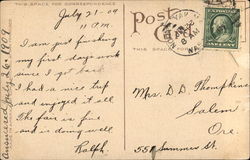 THIS SPACE FOR CORRESPONDENCE
July 21-09
7 P.M.
I am just finishing
my first days work
since I got back.
I had a nice trip
and enjoyed it all
The fair is fine
and is doing well.
Ralph.
Answered July 26 - 1909
Post
THIS SPACE FOR
Mrs. D. D. Thompkins
Salem
Ore.
551 Summer St.